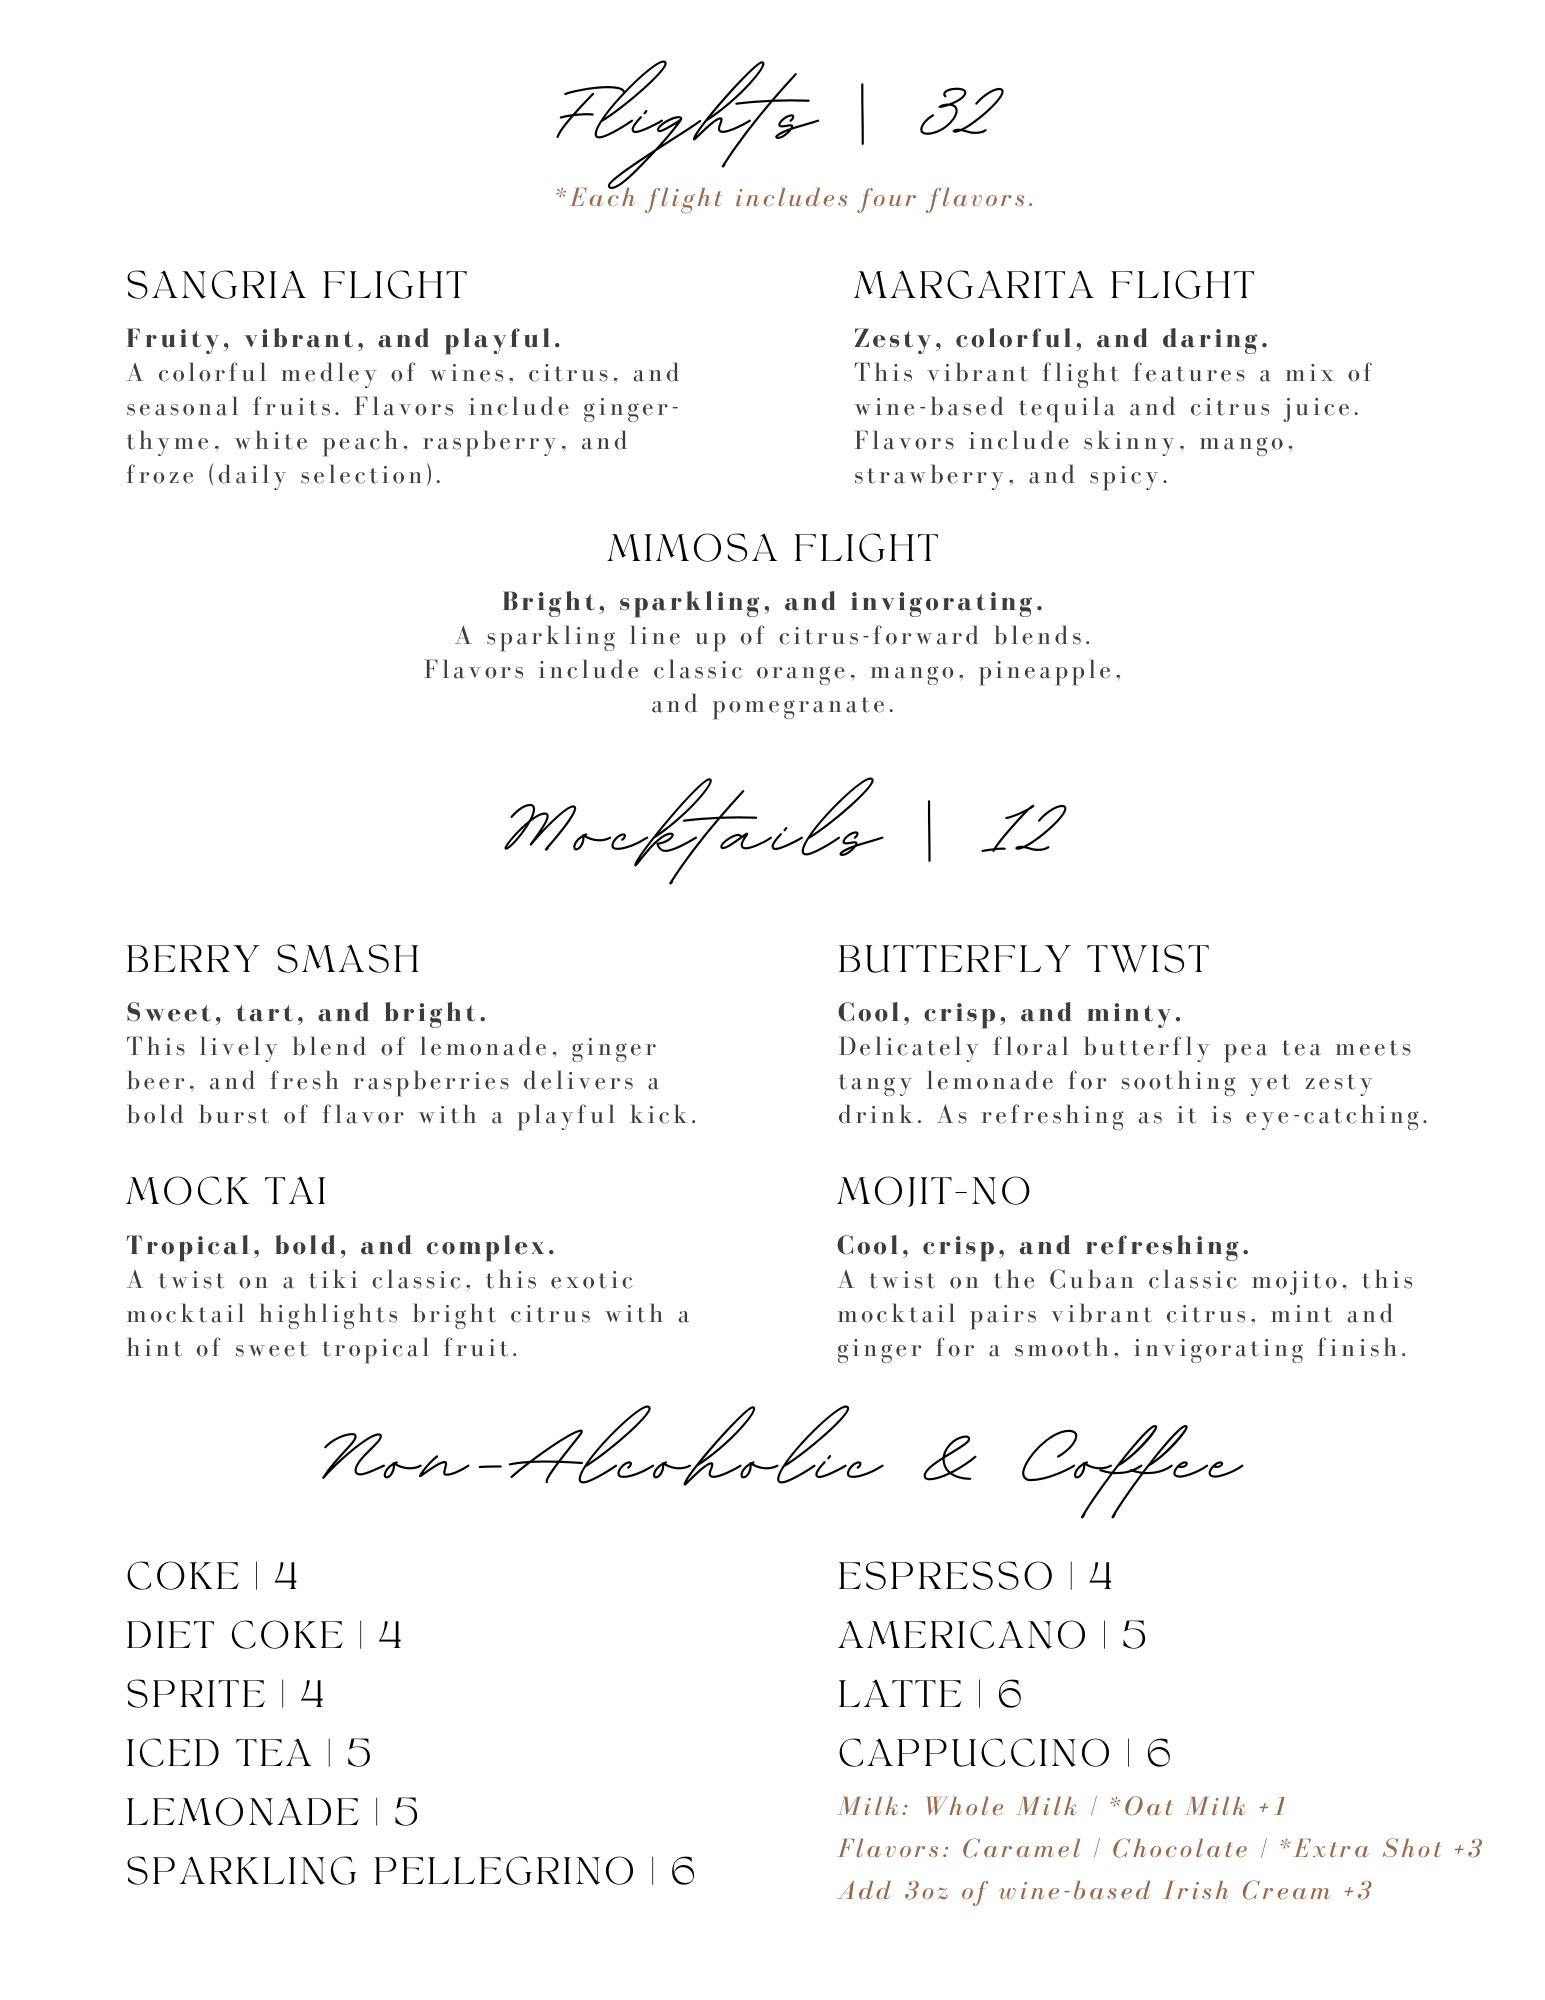 Flights | 32
*Each flight includes four flavors.
SANGRIA FLIGHT
Fruity, vibrant, and playful.
A colorful medley of wines, citrus, and
seasonal fruits. Flavors include ginger-
thyme, white peach, raspberry, and
froze (daily selection).
MARGARITA FLIGHT
Zesty, colorful, and daring.
This vibrant flight features a mix of
wine-based tequila and citrus juice.
Flavors include skinny, mango,
strawberry, and spicy.
MIMOSA FLIGHT
Bright, sparkling, and invigorating.
A sparkling line up of citrus-forward blends.
Flavors include classic orange, mango, pineapple,
and pomegranate.
Mocktails | 12
BERRY SMASH
Sweet, tart, and bright.
This lively blend of lemonade, ginger
beer, and fresh raspberries delivers a
bold burst of flavor with a playful kick.
BUTTERFLY TWIST
Cool, crisp, and minty.
Delicately floral butterfly pea tea meets
tangy lemonade for soothing yet zesty
drink. As refreshing as it is eye-catching.
MOCK TAI
Tropical, bold, and complex.
A twist on a tiki classic, this exotic
mocktail highlights bright citrus with a
hint of sweet tropical fruit.
MOJIT-NO
Cool, crisp, and refreshing.
A twist on the Cuban classic mojito, this
mocktail pairs vibrant citrus, mint and
ginger for a smooth, invigorating finish.
Non-Alcoholic & Coffee
COKE | 4
DIET COKE | 4
SPRITE | 4
ICED TEA | 5
LEMONADE | 5
SPARKLING PELLEGRINO | 6
ESPRESSO | 4
AMERICANO | 5
LATTE | 6
CAPPUCCINO | 6
Milk: Whole Milk | *Oat Milk +1
Flavors: Caramel | Chocolate | *Extra Shot +3
Add 3oz of wine-based Irish Cream +3